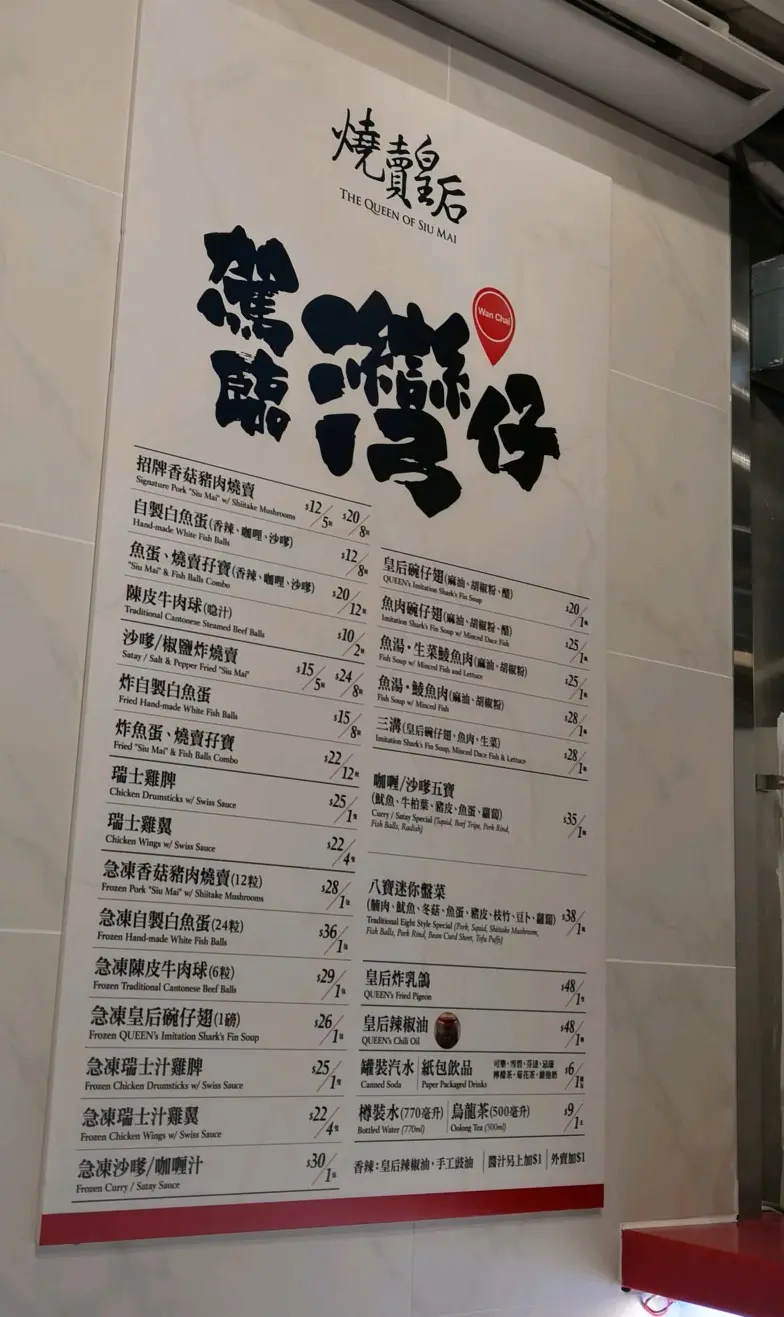 燒賣皇后
THE QUEEN OF SIU MAI
駕臨灣仔
Wan Chai
招牌香菇豬肉燒賣 $12/5粒 $20/8粒
Signature Pork "Siu Mai" w/ Shiitake Mushrooms
自製白魚蛋(香辣、咖喱、沙嗲) $12/8粒
Hand-made White Fish Balls
魚蛋、燒賣孖寶(香辣、咖喱、沙嗲) $20/12粒
"Siu Mai" & Fish Balls Combo
陳皮牛肉球(喼汁) $10/2粒
Traditional Cantonese Steamed Beef Balls
沙嗲/椒鹽炸燒賣 $15/5粒 $24/8粒
Satay / Salt & Pepper Fried "Siu Mai"
炸自製白魚蛋 $15/8粒
Fried Hand-made White Fish Balls
炸魚蛋、燒賣孖寶 $22/12粒
Fried "Siu Mai" & Fish Balls Combo
瑞士雞脾 $25/1隻
Chicken Drumsticks w/ Swiss Sauce
瑞士雞翼 $22/4隻
Chicken Wings w/ Swiss Sauce
急凍香菇豬肉燒賣(12粒) $28/1包
Frozen Pork "Siu Mai" w/ Shiitake Mushrooms
急凍自製白魚蛋(24粒) $36/1包
Frozen Hand-made White Fish Balls
急凍陳皮牛肉球(6粒) $29/1包
Frozen Traditional Cantonese Beef Balls
急凍皇后碗仔翅(1磅) $26/1包
Frozen QUEEN's Imitation Shark's Fin Soup
急凍瑞士汁雞脾 $25/1隻
Frozen Chicken Drumsticks w/ Swiss Sauce
急凍瑞士汁雞翼 $22/4隻
Frozen Chicken Wings w/ Swiss Sauce
急凍沙嗲/咖喱汁 $30/1包
Frozen Curry / Satay Sauce
皇后碗仔翅(麻油、胡椒粉、醋) $20/1碗
QUEEN's Imitation Shark's Fin Soup
魚肉碗仔翅(麻油、胡椒粉、醋) $25/1碗
Imitation Shark's Fin Soup w/ Minced Dace Fish
魚湯・生菜鯪魚肉(麻油、胡椒粉) $25/1碗
Fish Soup w/ Minced Fish and Lettuce
魚湯・鯪魚肉(麻油、胡椒粉) $28/1碗
Fish Soup w/ Minced Fish
三溝(皇后碗仔翅，魚肉，生菜) $28/1碗
Imitation Shark's Fin Soup, Minced Dace Fish & Lettuce
咖喱/沙嗲五寶
(魷魚、牛柏葉、豬皮、魚蛋、蘿蔔) $35/1碗
Curry / Satay Special (Squid, Beef Tripe, Pork Rind,
Fish Balls, Radish)
八寶迷你盤菜
(腩肉、魷魚、冬菇、魚蛋、豬皮、枝竹、豆卜、蘿蔔) $38/1碗
Traditional Eight Style Special (Pork, Squid, Shiitake Mushroom,
Fish Balls, Pork Rind, Bean Curd Sheet, Tofu Puffs)
皇后炸乳鴿 $48/1隻
QUEEN's Fried Pigeon
皇后辣椒油 $48/1樽
QUEEN's Chili Oil
罐裝汽水 紙包飲品 可樂・雪碧・芬達・忌廉 $6/1
Canned Soda Paper Packaged Drinks 檸檬茶・菊花茶・維他奶
樽裝水(770毫升) 烏龍茶(500毫升) $9/1支
Bottled Water (770ml) Oolong Tea (500ml)
香辣：皇后辣椒油，手工豉油 醬汁另上加$1 外賣加$1